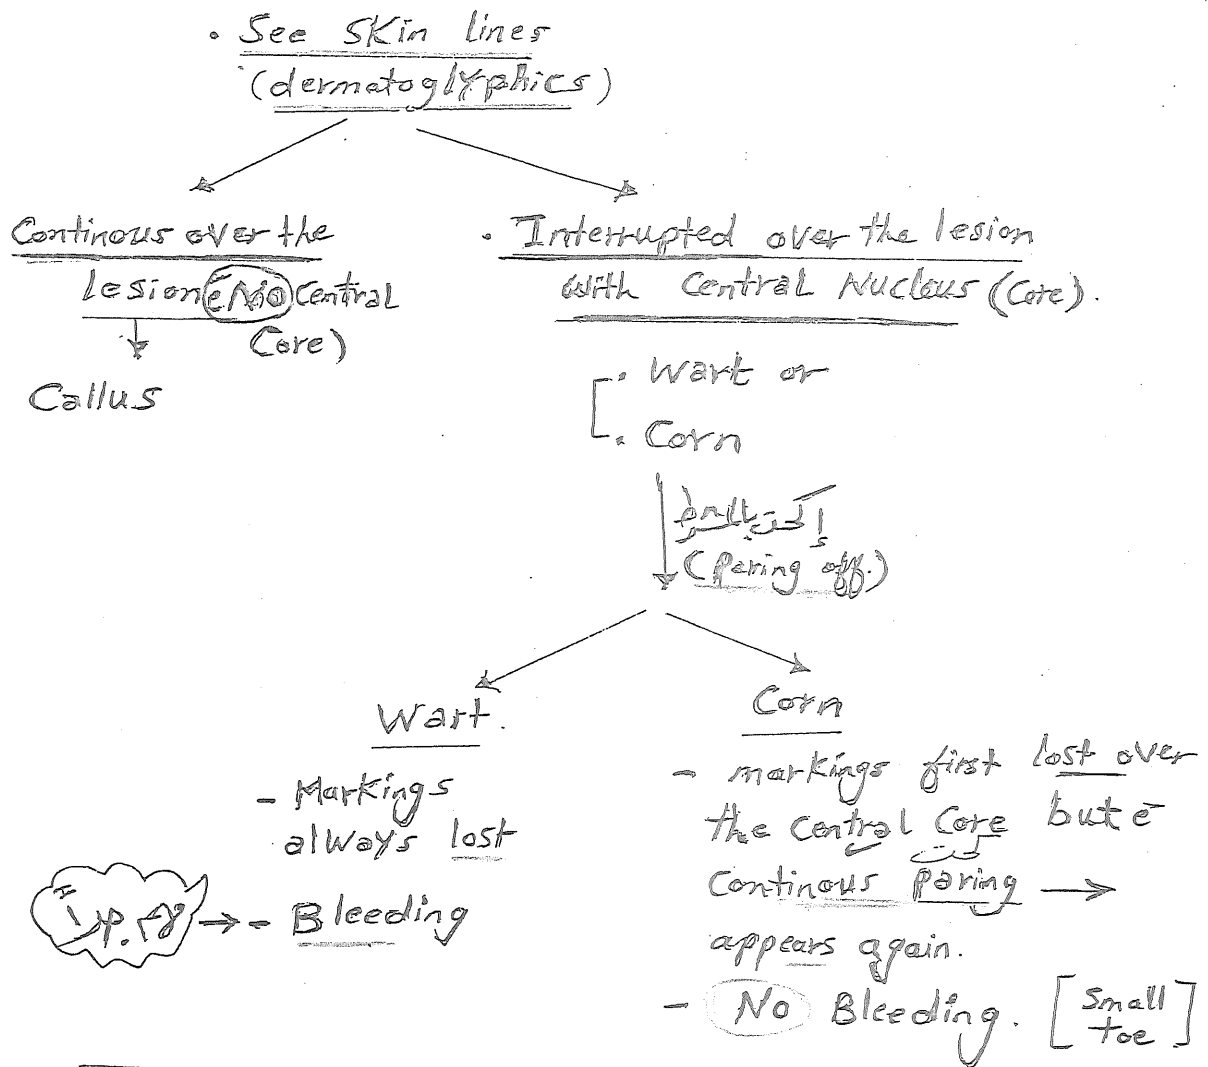 • See Skin lines
(dermatoglyphics)
Continous over the
lesion (ē No Central
Core)
Callus
• Interrupted over the lesion
with Central Nucleus (Core).
• Wart or
• Corn
إكحت بالمشرط
(Paring off.)
Wart.
- Markings
always lost
- Bleeding
Corn
- markings first lost over
the central Core but ē
كحت
Continous paring →
appears again.
- No Bleeding. [Small
toe]